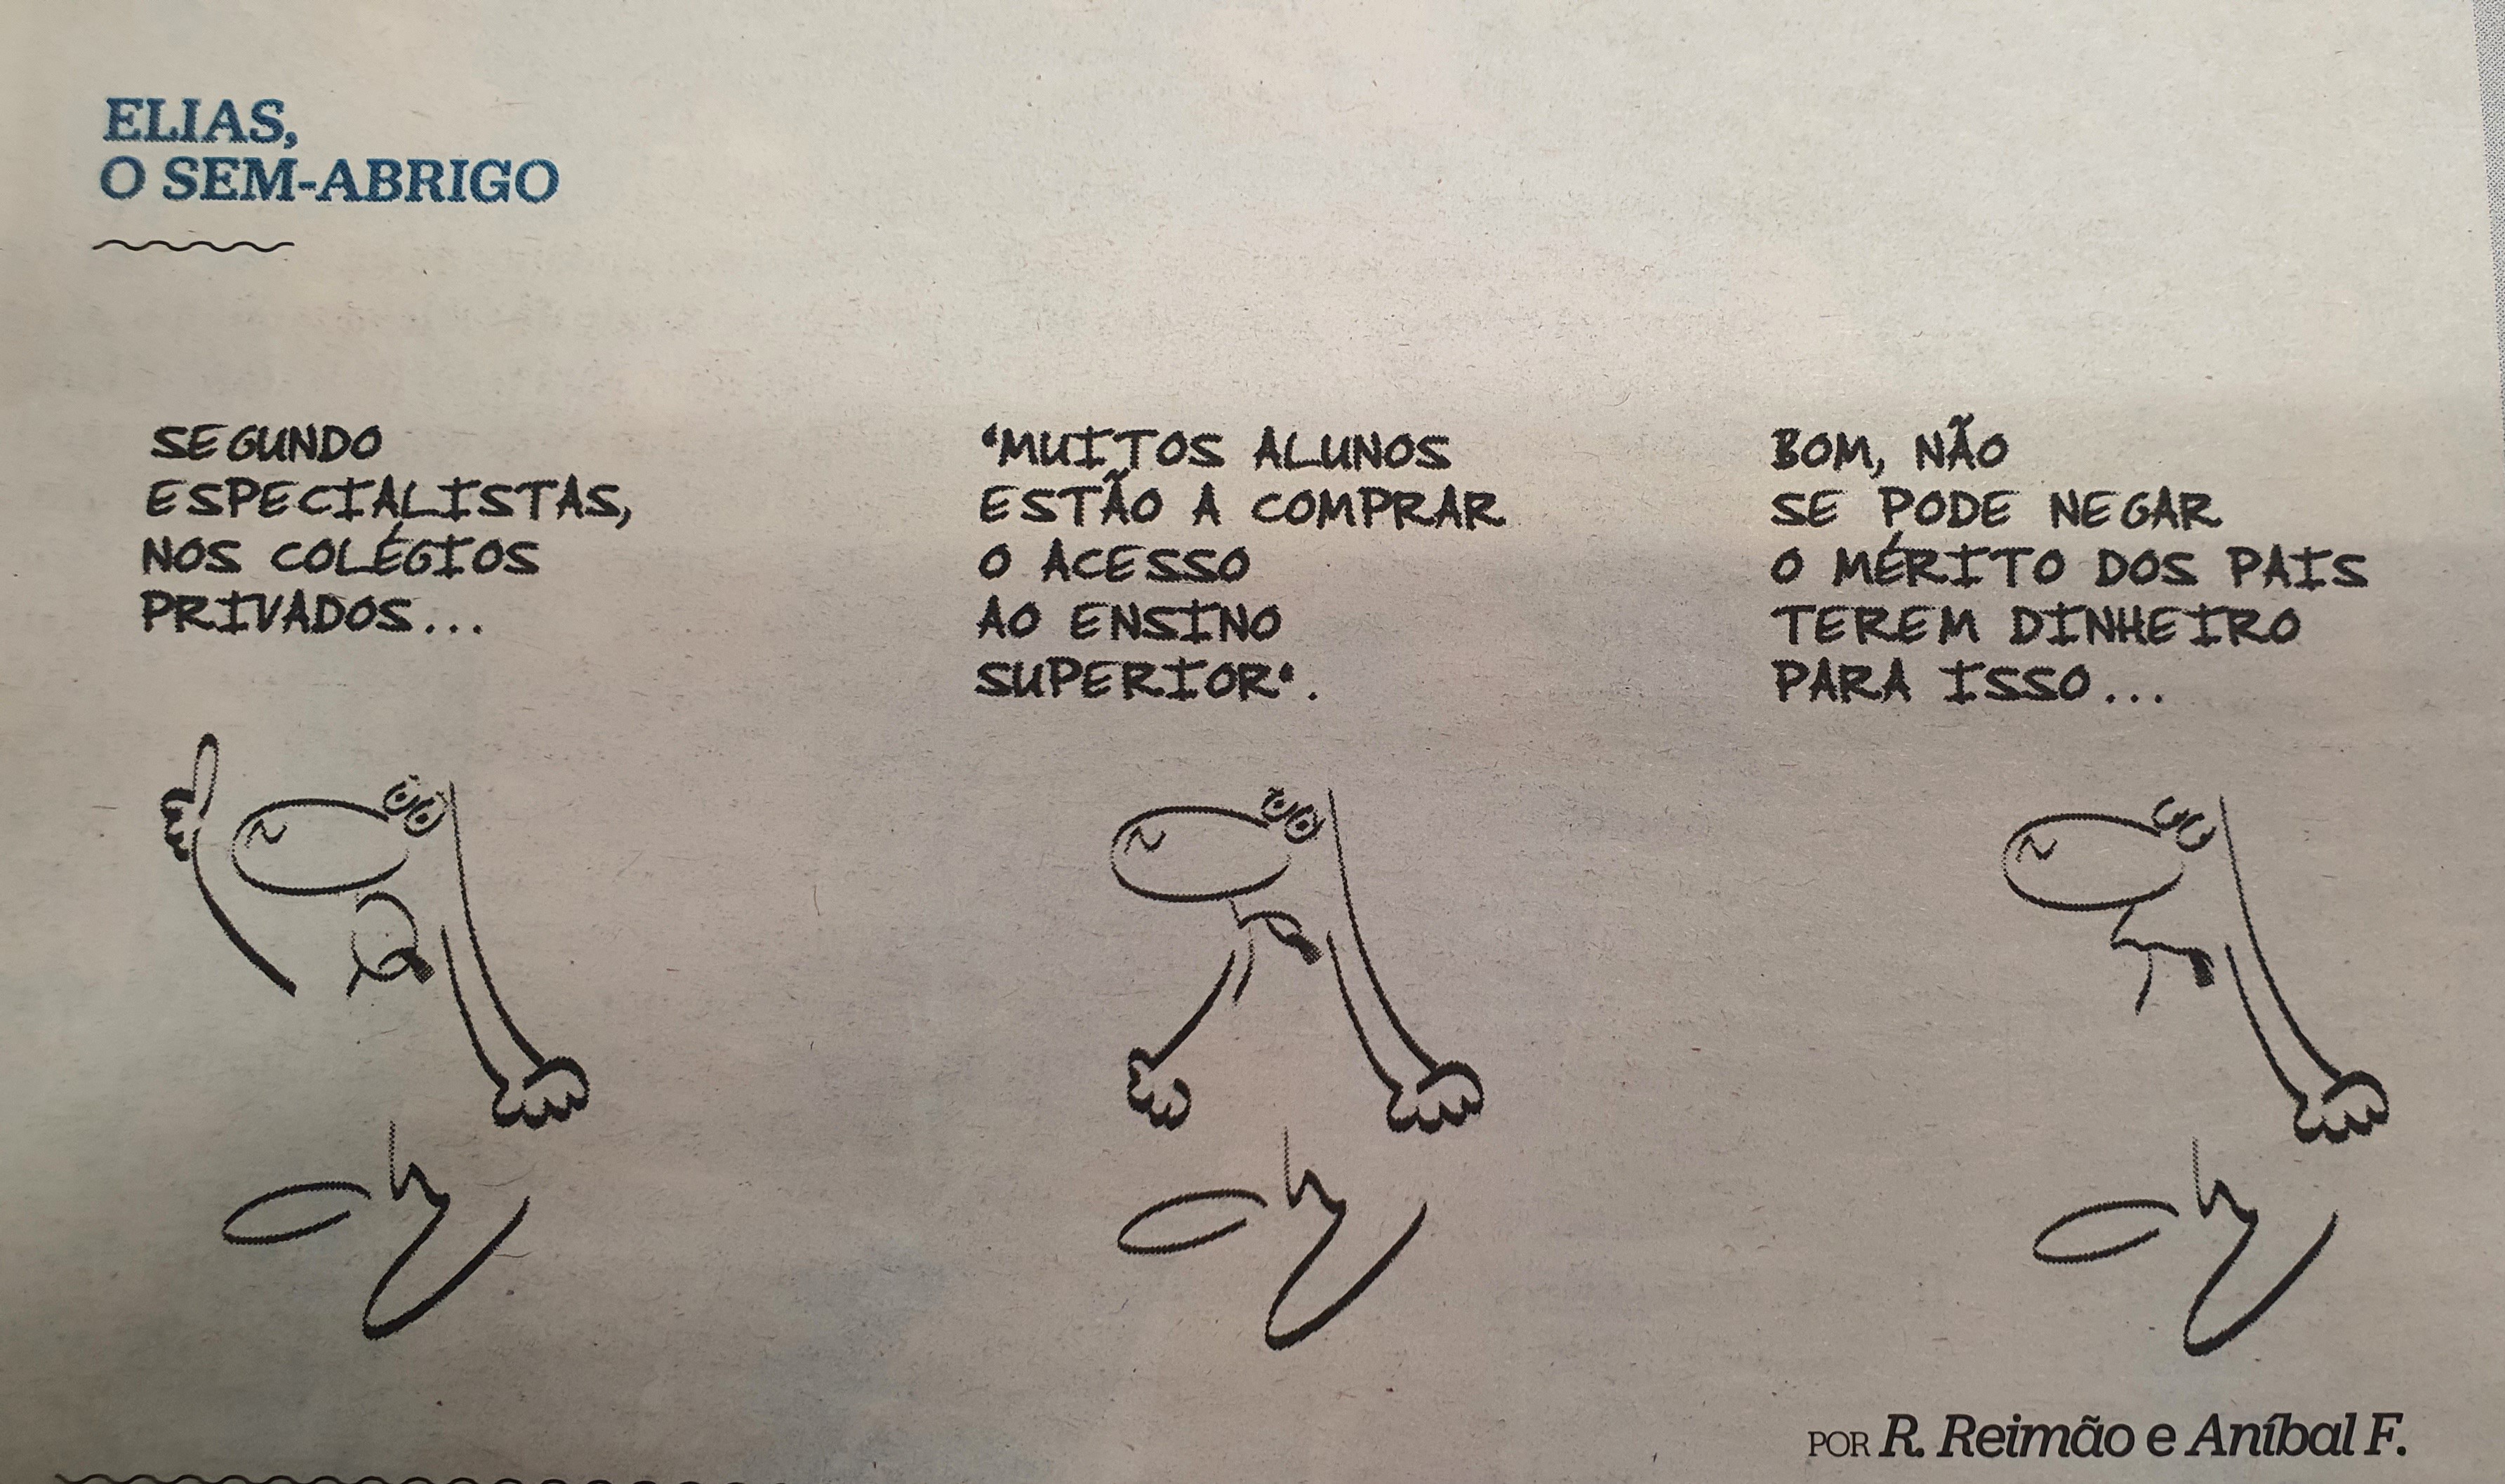 ELIAS,
O SEM-ABRIGO
SEGUNDO
ESPECIALISTAS,
NOS COLÉGIOS
PRIVADOS...
"MUITOS ALUNOS
ESTÃO A COMPRAR
O ACESSO
AO ENSINO
SUPERIOR".
BOM, NÃO
SE PODE NEGAR
O MÉRITO DOS PAIS
TEREM DINHEIRO
PARA ISSO...
POR R. Reimão e Aníbal F.